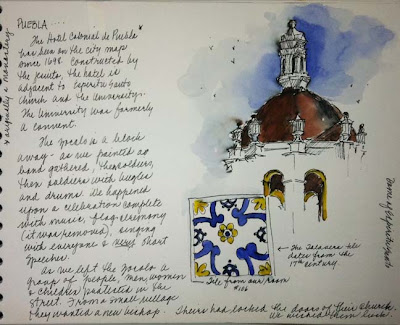 PUEBLA...
The Hotel Colonial de Puebla
has been on the city map
since 1698. Constructed by
the Jesuits, the hotel is
adjacent to Espiritu Santo
Church and the University.
The University was formerly
a convent.
* originally a monastery
The Zocalo is a block
away - as we painted a
band gathered, then soldiers,
then soldiers with bugles
and drums. We happened
upon a celebration complete
with music, flag ceremony
(it was removed), singing
with everyone & very short
speeches.
As we left the Zocalo a
group of people, men, women
& children protested in the
street. From a small village
they wanted a new bishop. Theirs had locked the doors of their church.
We wished them luck.
Dome of Espiritu Santo
← The Talavera tile
dates from the
17th century.
Tile from our room
#106